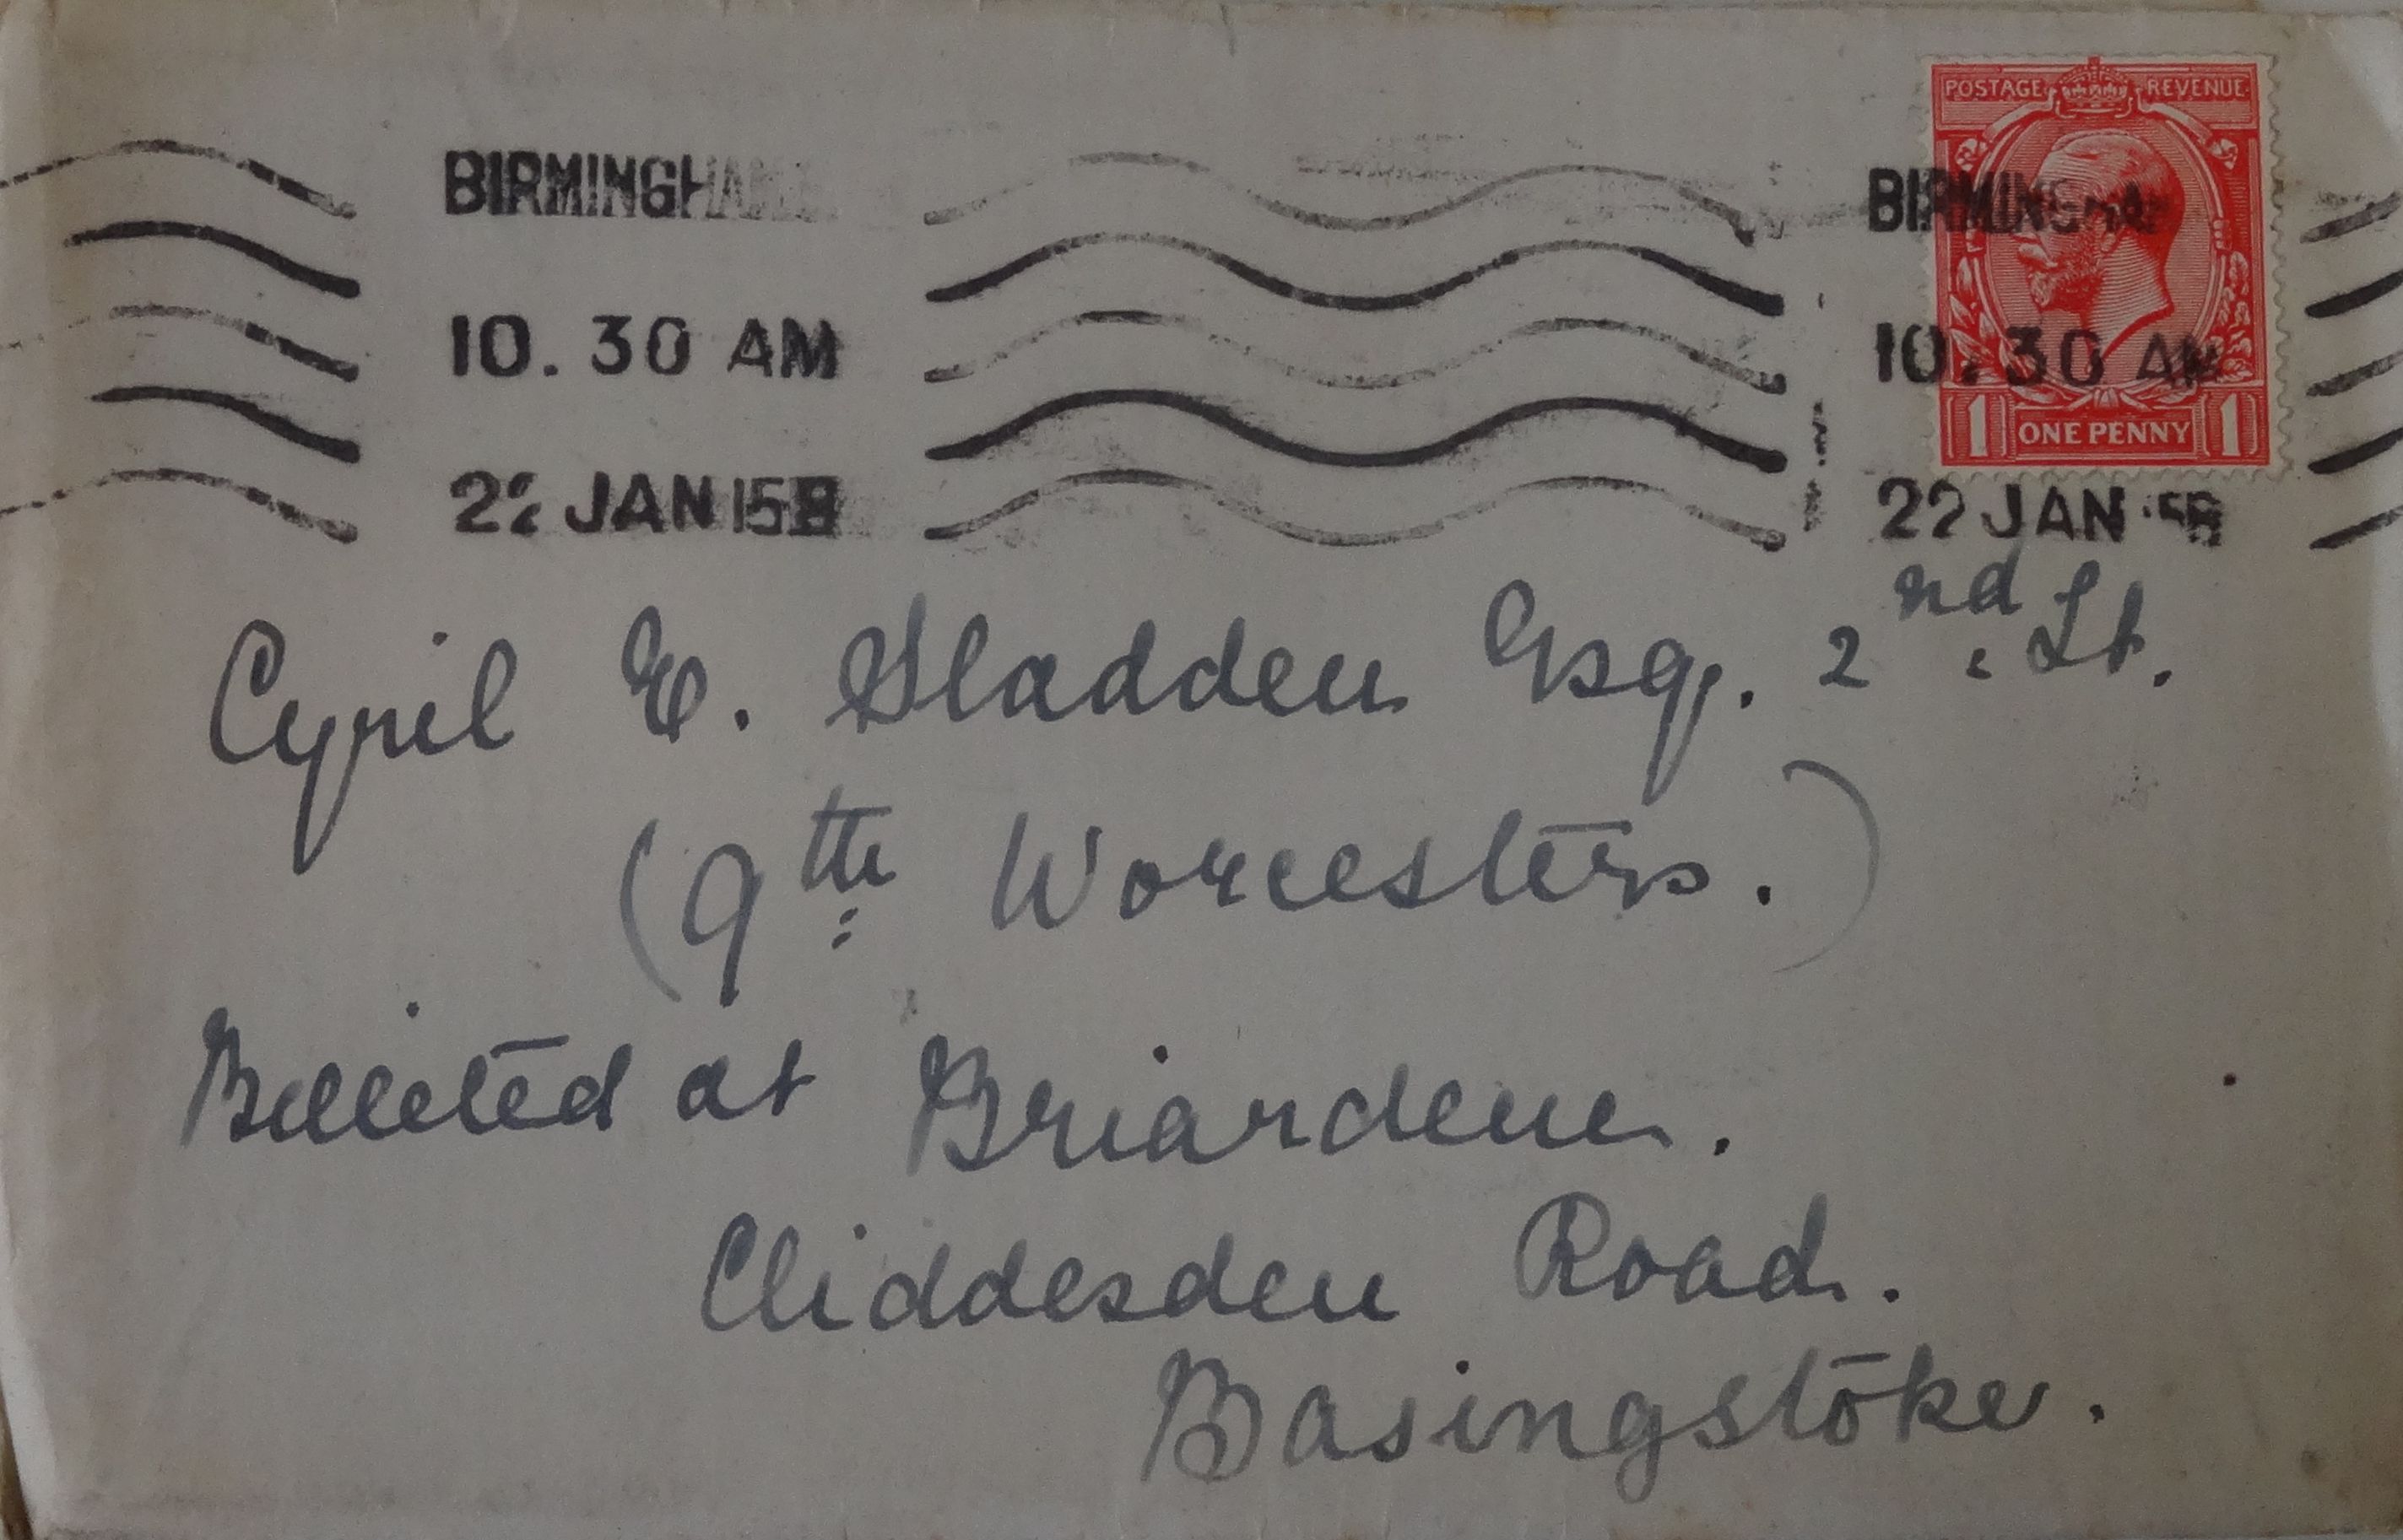 POSTAGE REVENUE
BIRMINGHAM BIRMINGHA
10.30 AM 10.30 AM
22 JAN 15 22 JAN
1 ONE PENNY 1
Cyril E. Sladden Esq. 2nd Lt.
(9th Worcesters.)
Billeted at Briardene.
Cliddesden Road.
Basingstoke.